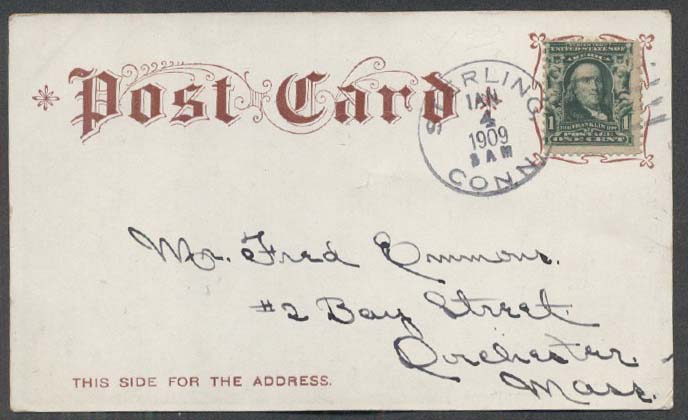 Post Card
STERLING,
JAN
4
1909
8 AM
CONN.
UNITED STATES OF AMERICA
1 FRANKLIN 1
POSTAGE
ONE CENT
Mr. Fred Emmons.
#2 Bay Street
Dorchester.
Mass.
THIS SIDE FOR THE ADDRESS.